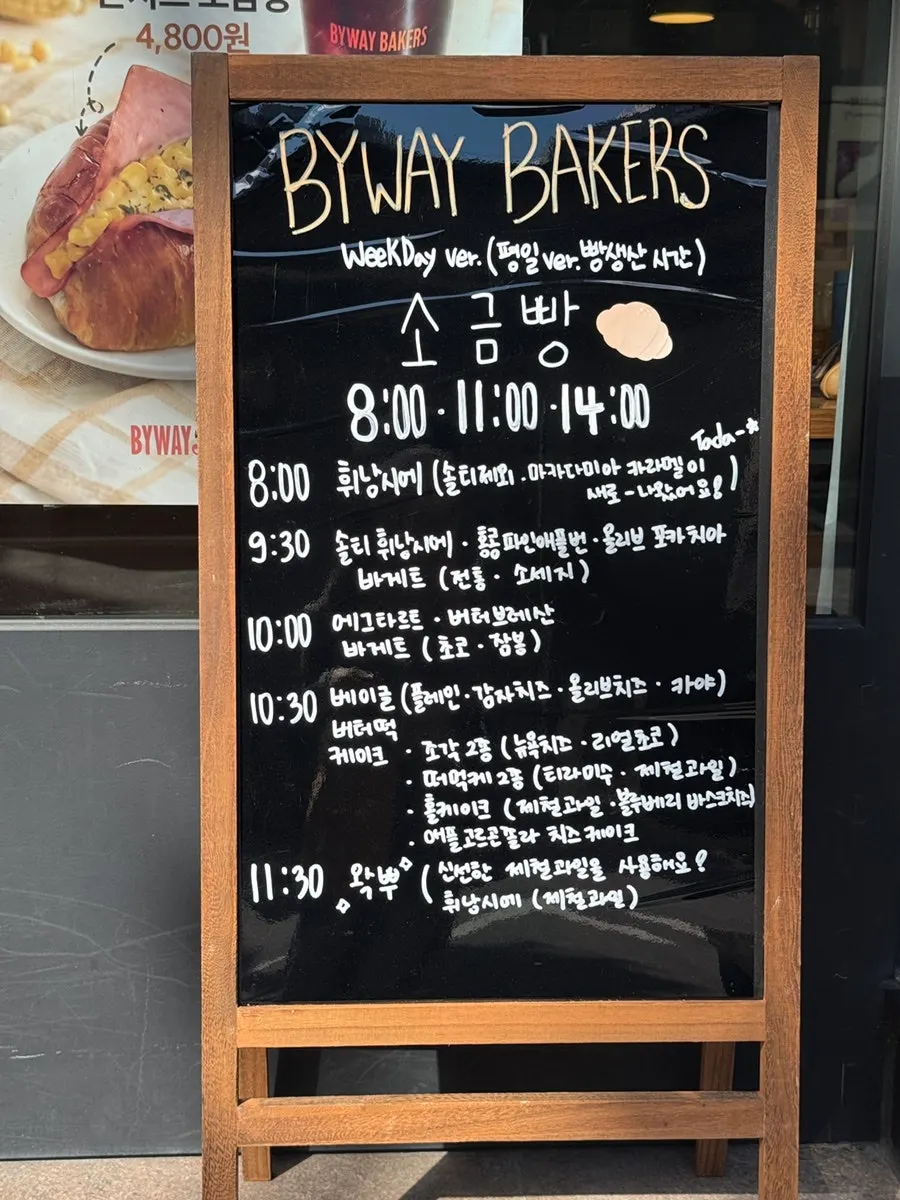 4,800원
BYWAY BAKERS
BYWAY
BYWAY BAKERS
WeeKDay ver. (평일 ver. 빵생산 시간)
소금빵
8:00 · 11:00 · 14:00
Tada-*
8:00 휘낭시에 (솔티제외 · 마카다미아 카라멜이
새로-나왔어요!)
9:30 솔티 휘낭시에 · 홍콩파인애플번 · 올리브 포카치아
바게트 (전통 · 소세지)
10:00 에그타르트 · 버터브레산
바게트 (초코 · 잠봉)
10:30 베이글 (플레인 · 감자치즈 · 올리브치즈 · 카야)
버터떡
케이크 · 조각 2종 (뉴욕치즈 · 리얼초코)
· 떠먹케 2종 (티라미수 · 제철과일)
· 홀케이크 (제철과일 · 블루베리 바스크치즈)
· 애플고르곤졸라 치즈케이크
11:30 왁뿌 (신선한 제철과일을 사용해요!
휘낭시에 (제철과일)